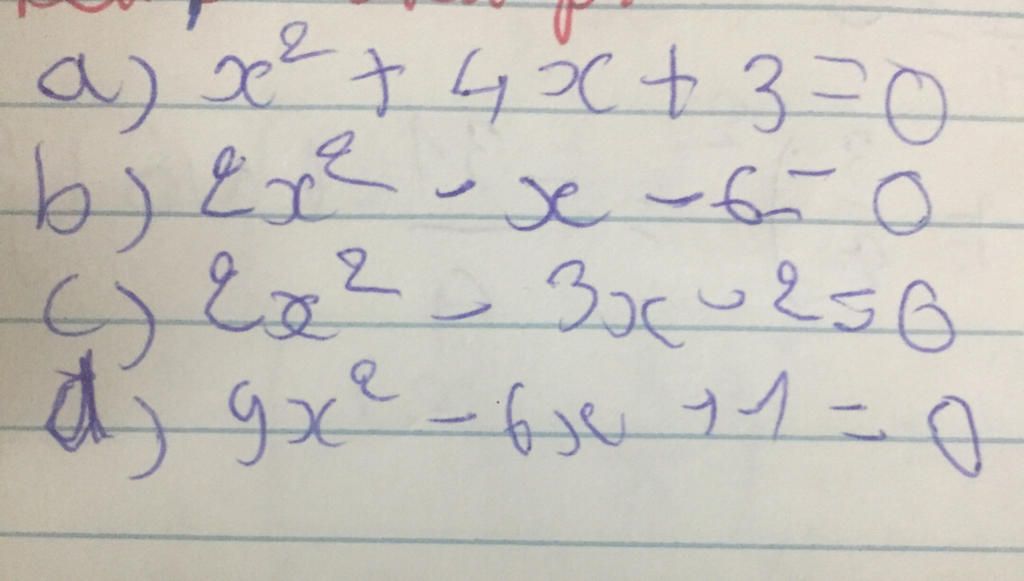 a) x² + 4x + 3 = 0
b) 2x² - x - 6 = 0
c) 2x² - 3x - 2 = 0
d) 9x² - 6x + 1 = 0